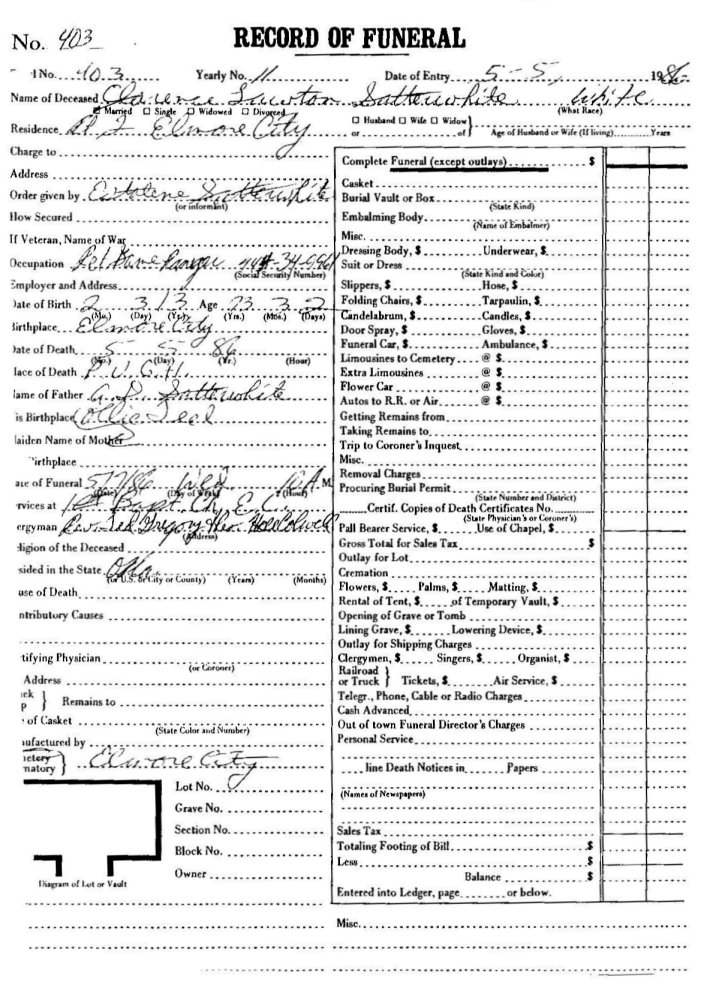 No. 403
RECORD OF FUNERAL
l No. 403 Yearly No. 11 Date of Entry 5-5, 1986
Name of Deceased Clarence Lawton Satterwhite White
☒ Married ☐ Single ☐ Widowed ☐ Divorced (What Race)
☐ Husband ☐ Wife ☐ Widow }
Residence Rt 1 Elmore City or of } Age of Husband or Wife (If living) Years
Charge to
Address
Order given by Satterwhite
(or informant)
How Secured
If Veteran, Name of War
Occupation Ret Game Ranger
(Social Security Number)
Employer and Address
Date of Birth 2 3 13 Age 73 3 2
(Mo.) (Day) (Yr.) (Yrs.) (Mos.) (Days)
Birthplace Elmore City
Date of Death 5 5 86
(Mo.) (Day) (Yr.) (Hour)
lace of Death P. V. G. H.
lame of Father Satterwhite
is Birthplace Ollie Teal
laiden Name of Mother
irthplace
ate of Funeral 5/7/86 Wed 10 A. M.
(Date) (Day of Week) (Hour)
rvices at 1st Bapt. Ch. E. C.
ergyman Rev. Ted Gregory
(Address)
ligion of the Deceased
sided in the State Okla
(or U.S. or City or County) (Years) (Months)
use of Death
ntributory Causes
tifying Physician
(or Coroner)
Address
Remains to
of Casket
(State Color and Number)
ufactured by
Elmore City
Lot No.
Grave No.
Section No.
Block No.
Owner
Diagram of Lot or Vault
Complete Funeral (except outlays) $
Casket
Burial Vault or Box
(State Kind)
Embalming Body
(Name of Embalmer)
Misc.
Dressing Body, $ Underwear, $
Suit or Dress
(State Kind and Color)
Slippers, $ Hose, $
Folding Chairs, $ Tarpaulin, $
Candelabrum, $ Candles, $
Door Spray, $ Gloves, $
Funeral Car, $ Ambulance, $
Limousines to Cemetery @ $
Extra Limousines @ $
Flower Car @ $
Autos to R.R. or Air @ $
Getting Remains from
Taking Remains to
Trip to Coroner's Inquest
Misc.
Removal Charges
Procuring Burial Permit
(State Number and District)
Certif. Copies of Death Certificates No.
(State Physician's or Coroner's)
Pall Bearer Service, $ Use of Chapel, $
Gross Total for Sales Tax $
Outlay for Lot
Cremation
Flowers, $ Palms, $ Matting, $
Rental of Tent, $ of Temporary Vault, $
Opening of Grave or Tomb
Lining Grave, $ Lowering Device, $
Outlay for Shipping Charges
Clergymen, $ Singers, $ Organist, $
Railroad
or Truck } Tickets, $ Air Service, $
Telegr., Phone, Cable or Radio Charges
Cash Advanced
Out of town Funeral Director's Charges
Personal Service
line Death Notices in Papers
(Names of Newspapers)
Sales Tax
Totaling Footing of Bill $
Less $
Balance $
Entered into Ledger, page or below.
Misc.